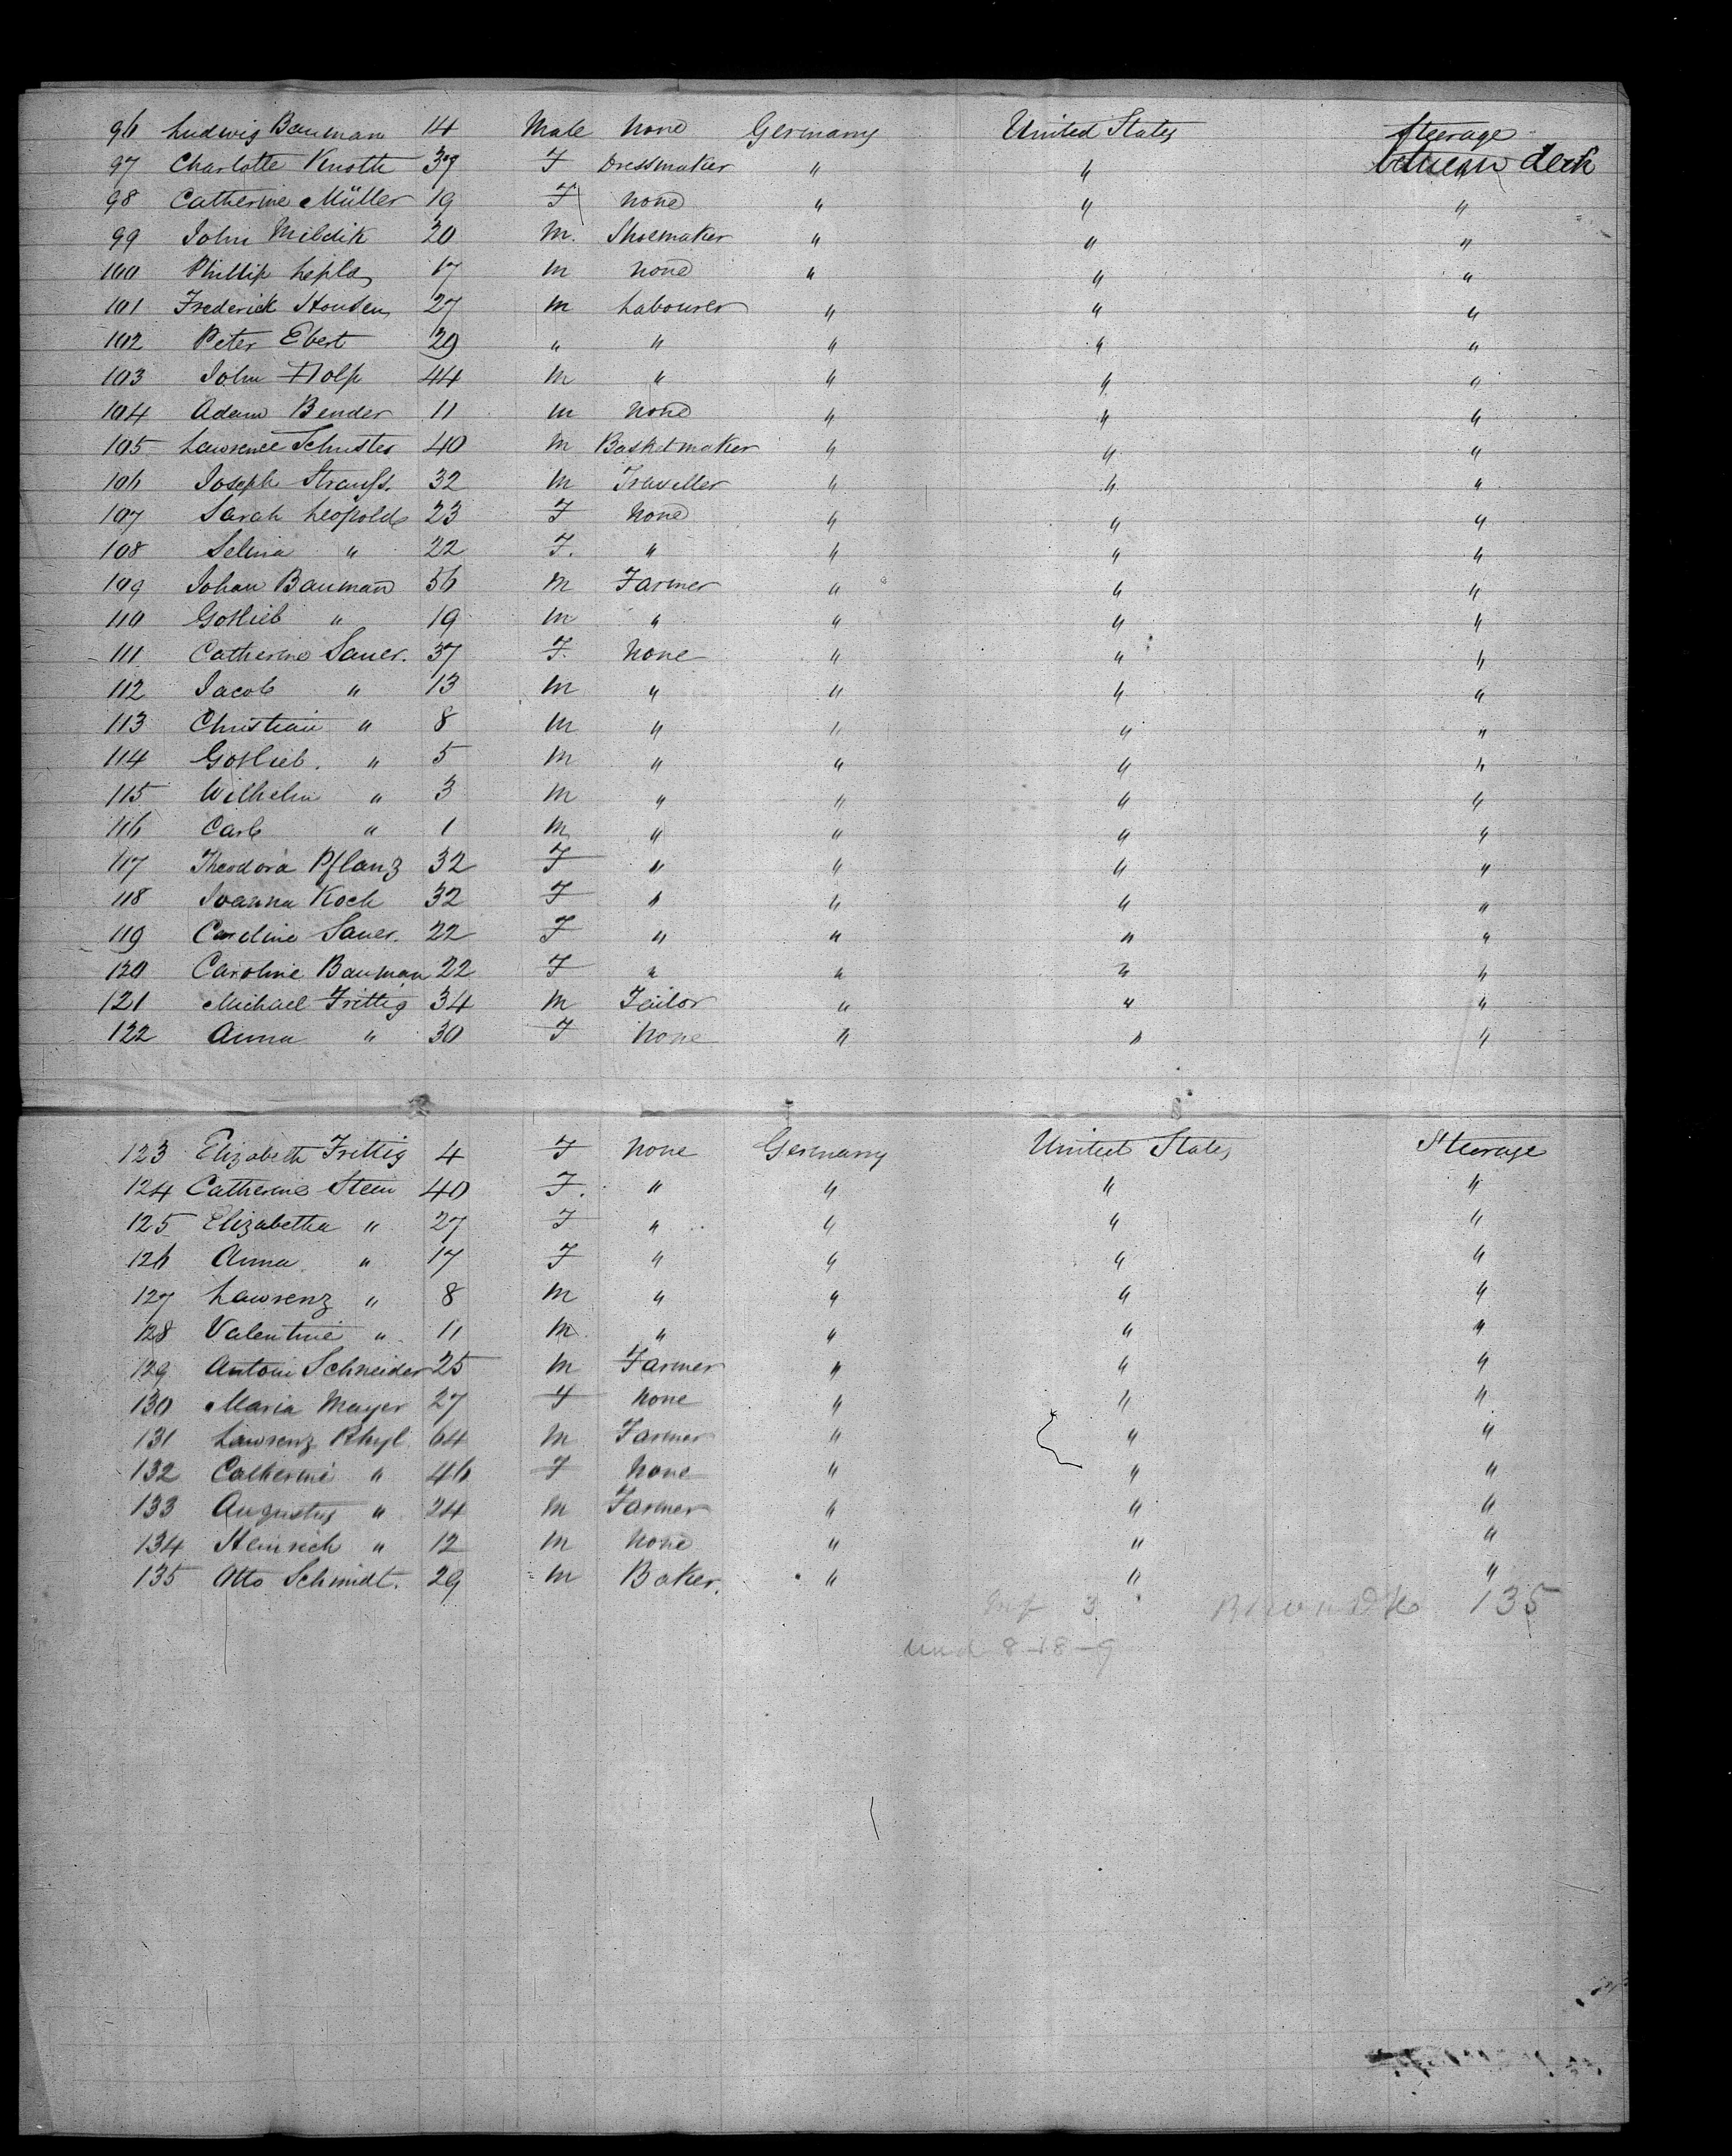 96 Ludwig Bauman 14 Male None Germany United States Steerage
97 Charlotte Knoth 39 F Dressmaker " " between deck "
98 Catherine Müller 19 F None " " "
99 John Mildik 20 M. Shoemaker " " "
100 Phillip Lepla 17 M None " " "
101 Frederick Housen 27 M Labourer " " "
102 Peter Ebert 29 " " " " "
103 John Holp 44 M " " " "
104 Adam Bender 11 M None " " "
105 Lawrence Schuster 40 M Basketmaker " " "
106 Joseph Strauss. 32 M Traveller " " "
107 Sarah Leopold 23 F None " " "
108 Selina " 22 F. " " " "
109 Johan Bauman 56 M Farmer " " "
110 Gotlieb " 19 M " " " "
111 Catherine Sauer. 37 F. None " " "
112 Jacob " 13 M " " " "
113 Christian " 8 M " " " "
114 Gotlieb. " 5 M " " " "
115 Wilhelm " 3 M " " " "
116 Carl " 1 M " " " "
117 Theodora Pflanz 32 F " " " "
118 Joanna Koch 32 F " " " "
119 Caroline Sauer. 22 F " " " "
120 Caroline Bauman 22 F " " " "
121 Michael Frittig 34 M Tailor " " "
122 Anna " 30 F None " " "
123 Elizabeth Frittig 4 F None Germany United States Steerage
124 Catherine Stein 40 F. " " " "
125 Elizabetha " 27 F " " " "
126 Anna " 17 F " " " "
127 Lawrenz " 8 M " " " "
128 Valentine " 11 M " " " "
129 Antoin Schneider 25 M Farmer " " "
130 Maria Mayer 27 F None " " "
131 Lawrenz Rhyl 64 M Farmer " " "
132 Catherine " 46 F None " " "
133 Augustus " 24 M Farmer " " "
134 Heinrich " 12 M None " " "
135 Otto Schmidt. 29 M Baker. " " "
Inf 3 135
und 8-18-9